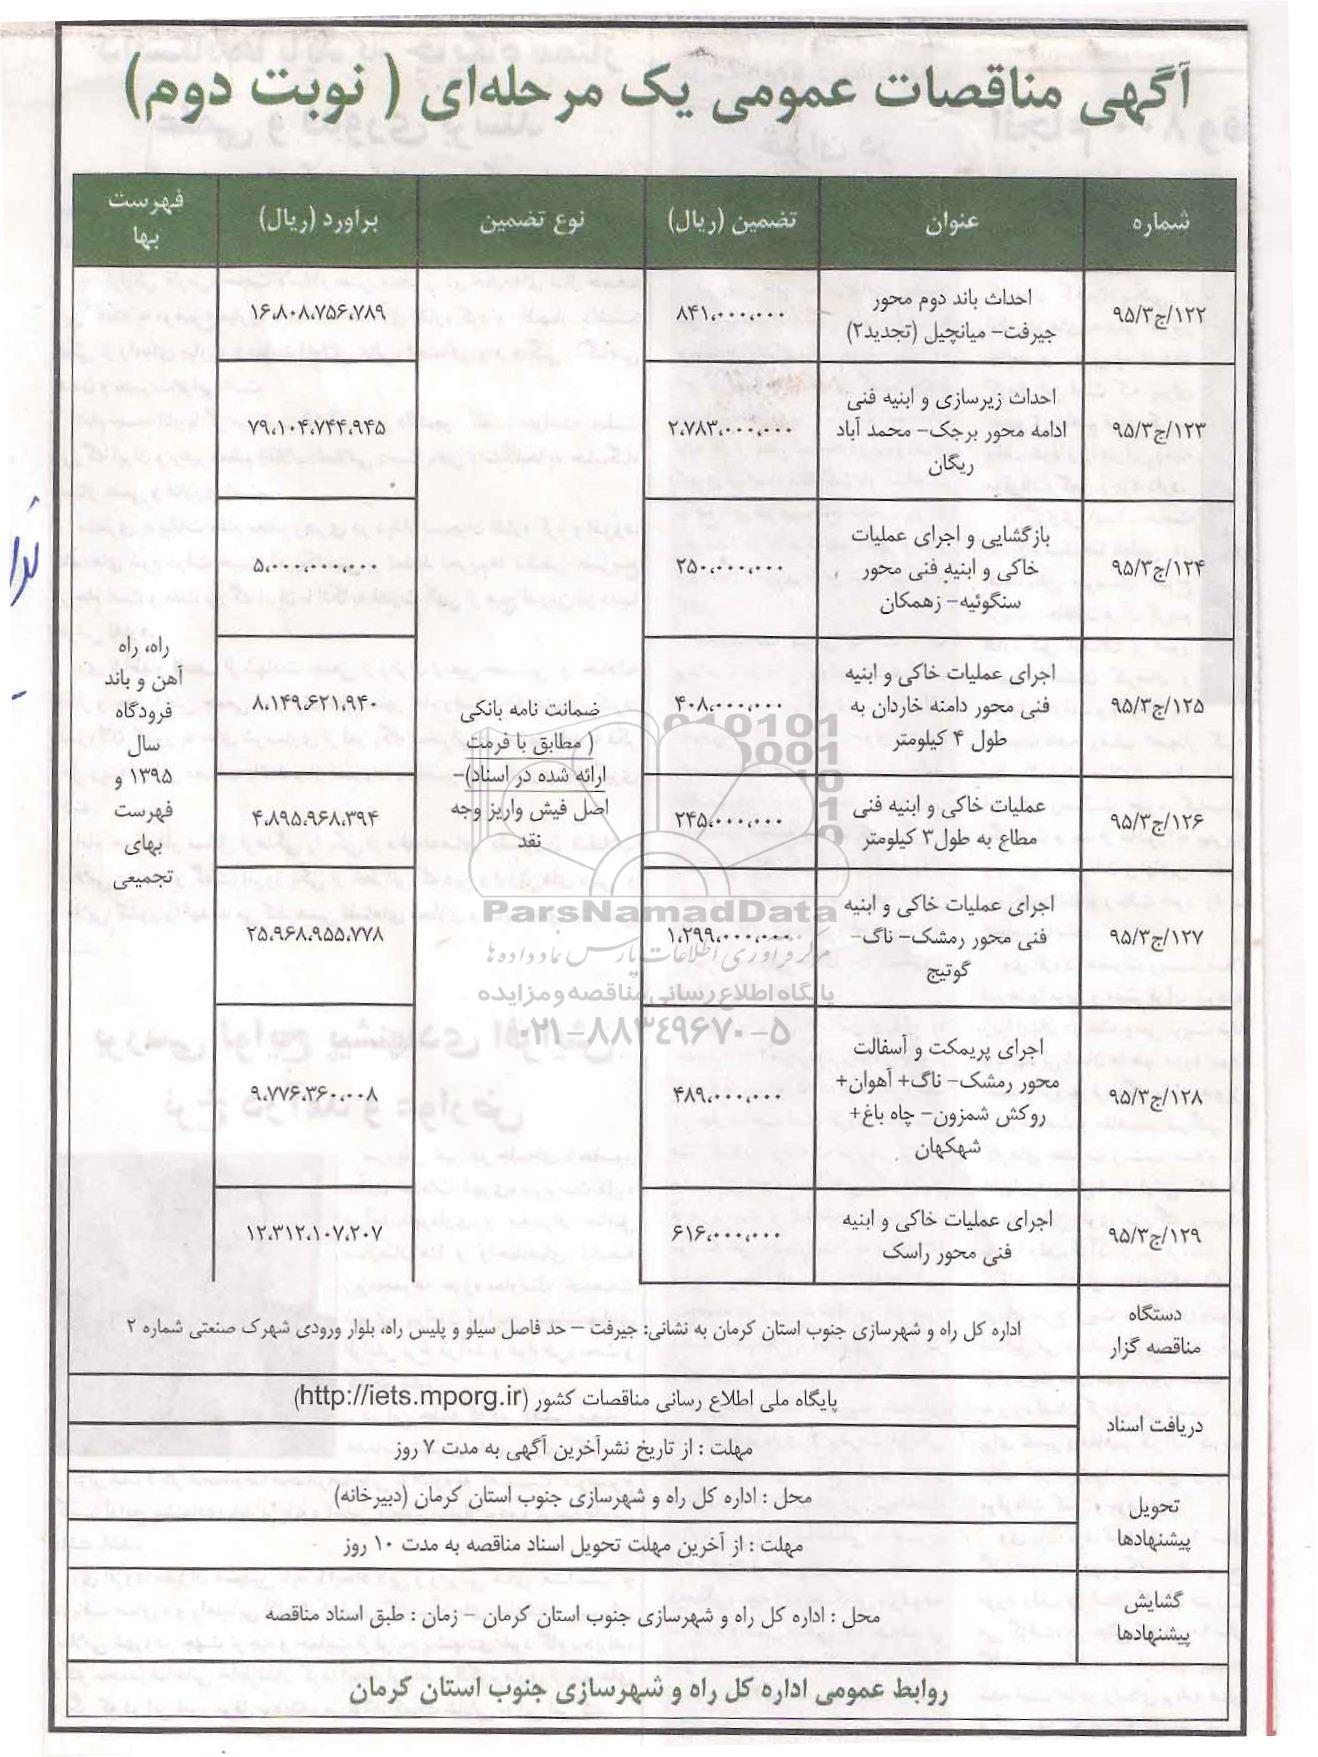 آگهی مناقصات عمومی یک مرحله‌ای ( نوبت دوم)
شماره
عنوان
تضمین (ریال)
نوع تضمین
برآورد (ریال)
فهرست
بها
۱۲۲/ج۹۵/۳
احداث باند دوم محور
جیرفت- میانچیل (تجدید۲)
۸۴۱،۰۰۰،۰۰۰
۱۶،۸۰۸،۷۵۶،۷۸۹
۱۲۳/ج۹۵/۳
احداث زیرسازی و ابنیه فنی
ادامه محور برجک- محمد آباد
ریگان
۲،۷۸۳،۰۰۰،۰۰۰
۷۹،۱۰۴،۷۴۴،۹۴۵
۱۲۴/ج۹۵/۳
بازگشایی و اجرای عملیات
خاکی و ابنیه فنی محور
سنگوئیه- زهمکان
۲۵۰،۰۰۰،۰۰۰
۵،۰۰۰،۰۰۰،۰۰۰
۱۲۵/ج۹۵/۳
اجرای عملیات خاکی و ابنیه
فنی محور دامنه خاردان به
طول ۴ کیلومتر
۴۰۸،۰۰۰،۰۰۰
۸،۱۴۹،۶۲۱،۹۴۰
۱۲۶/ج۹۵/۳
عملیات خاکی و ابنیه فنی
مطاع به طول۳ کیلومتر
۲۴۵،۰۰۰،۰۰۰
۴،۸۹۵،۹۶۸،۳۹۴
۱۲۷/ج۹۵/۳
اجرای عملیات خاکی و ابنیه
فنی محور رمشک- ناگ-
گوتیج
۱،۲۹۹،۰۰۰،۰۰۰
۲۵،۹۶۸،۹۵۵،۷۷۸
۱۲۸/ج۹۵/۳
اجرای پریمکت و آسفالت
محور رمشک- ناگ+ آهوان+
روکش شمزون- چاه باغ+
شهکهان
۴۸۹،۰۰۰،۰۰۰
۹،۷۷۶،۳۶۰،۰۰۸
۱۲۹/ج۹۵/۳
اجرای عملیات خاکی و ابنیه
فنی محور راسک
۶۱۶،۰۰۰،۰۰۰
۱۲،۳۱۲،۱۰۷،۲۰۷
ضمانت نامه بانکی
( مطابق با فرمت
ارائه شده در اسناد)-
اصل فیش واریز وجه
نقد
راه، راه
آهن و باند
فرودگاه
سال
۱۳۹۵ و
فهرست
بهای
تجمیعی
ParsNamadData
مرکز فرآوری اطلاعات پارس نماد داده ها
پایگاه اطلاع رسانی مناقصه و مزایده
۰۲۱-۸۸۳۴۹۶۷۰-۵
دستگاه
مناقصه گزار
اداره کل راه و شهرسازی جنوب استان کرمان به نشانی: جیرفت – حد فاصل سیلو و پلیس راه، بلوار ورودی شهرک صنعتی شماره ۲
دریافت اسناد
پایگاه ملی اطلاع رسانی مناقصات کشور (http://iets.mporg.ir)
مهلت : از تاریخ نشرآخرین آگهی به مدت ۷ روز
تحویل
پیشنهادها
محل : اداره کل راه و شهرسازی جنوب استان کرمان (دبیرخانه)
مهلت : از آخرین مهلت تحویل اسناد مناقصه به مدت ۱۰ روز
گشایش
پیشنهادها
محل : اداره کل راه و شهرسازی جنوب استان کرمان – زمان : طبق اسناد مناقصه
روابط عمومی اداره کل راه و شهرسازی جنوب استان کرمان